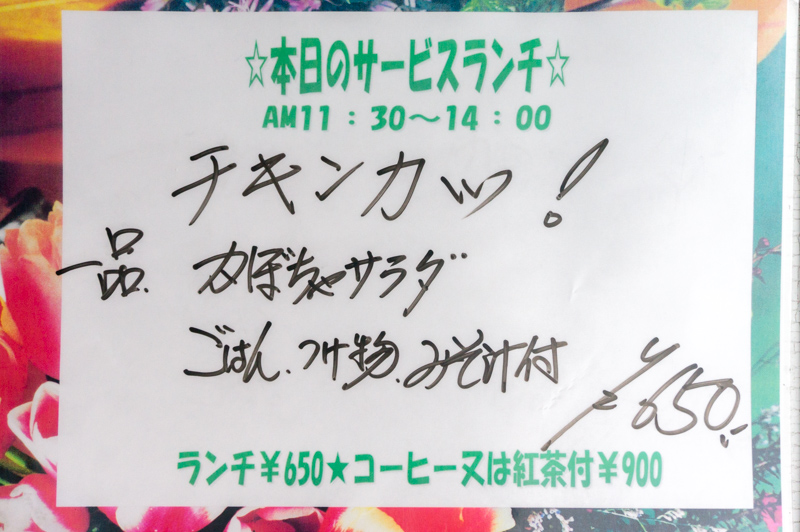 ☆本日のサービスランチ☆
AM11：30〜14：00
チキンカツ！
一品. かぼちゃサラダ
ごはん、つけ物、みそ汁付
¥650.-
ランチ¥650★コーヒー又は紅茶付¥900